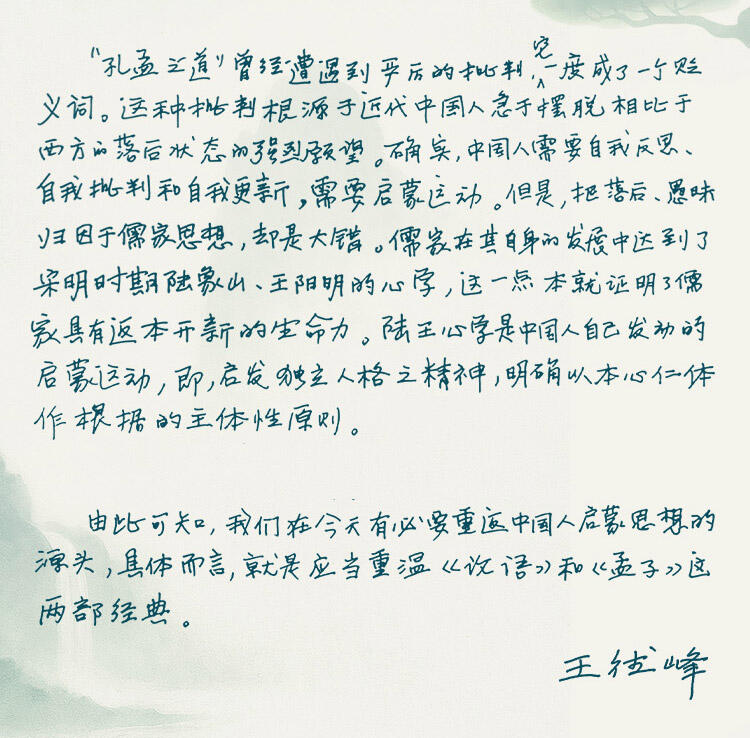 “孔孟之道”曾经遭遇到严厉的批判,它一度成了一个贬
义词。这种批判根源于近代中国人急于摆脱相比于
西方的落后状态的强烈愿望。确实,中国人需要自我反思、
自我批判和自我更新,需要启蒙运动。但是,把落后、愚昧
归因于儒家思想,却是大错。儒家在其自身的发展中达到了
宋明时期陆象山、王阳明的心学,这一点本就证明了儒
家具有返本开新的生命力。陆王心学是中国人自己发动的
启蒙运动,即,启发独立人格之精神,明确以本心仁体
作根据的主体性原则。
由此可知,我们在今天有必要重返中国人启蒙思想的
源头,具体而言,就是应当重温《论语》和《孟子》这
两部经典。
王德峰